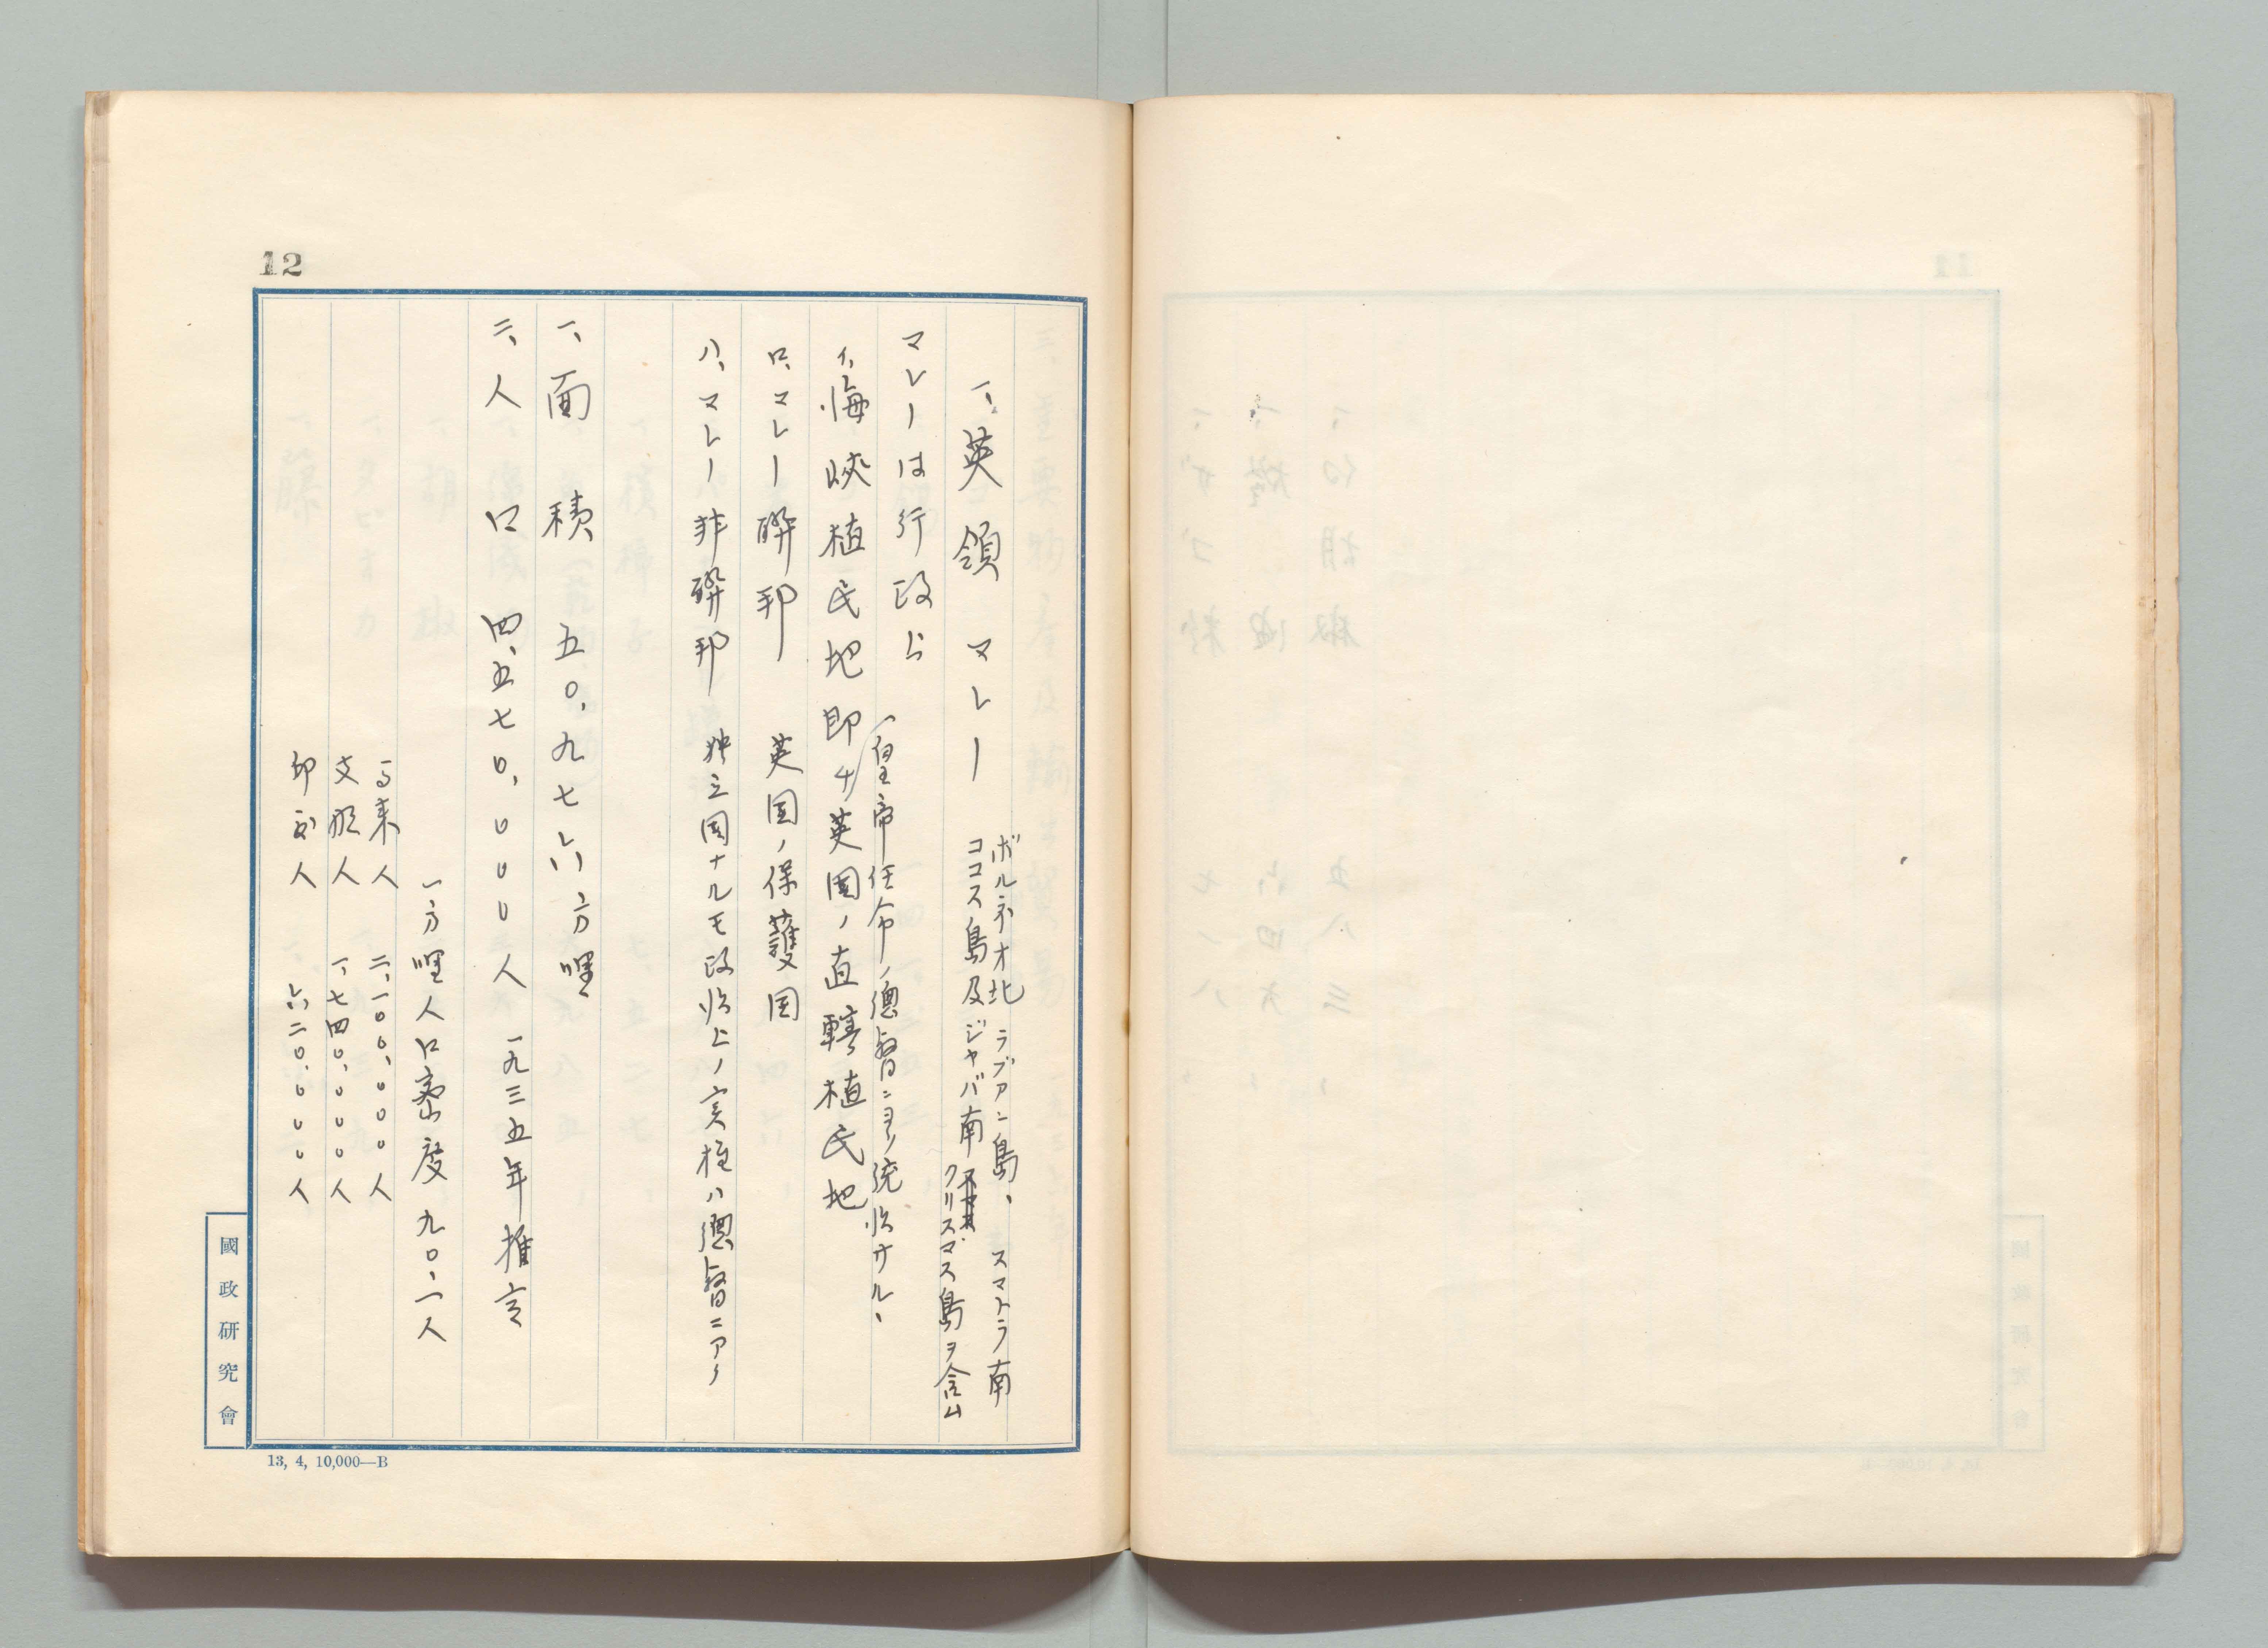 12
一、英領マレー
ボルネオ北ラブアン島、スマトラ南
ココス島及ジャバ南クリスマス島ヲ含ム
マレーは行政上
(皇帝任命ノ總督ニヨリ統治サル、
イ、海峡植民地即チ英国ノ直轄植民地
ロ、マレー聯邦 英国ノ保護国
ハ、マレー非聯邦 独立国ナルモ政治上ノ実権ハ總督ニアリ
一、面積 五〇、九七六方哩
二、人口 四、五七〇、〇〇〇人 一九三五年推定
一方哩人口密度 九〇、一人
馬来人 二、一〇〇、〇〇〇人
支那人 一、七四〇、〇〇〇人
印度人 六二〇、〇〇〇人
國政研究會
13, 4, 10,000—B